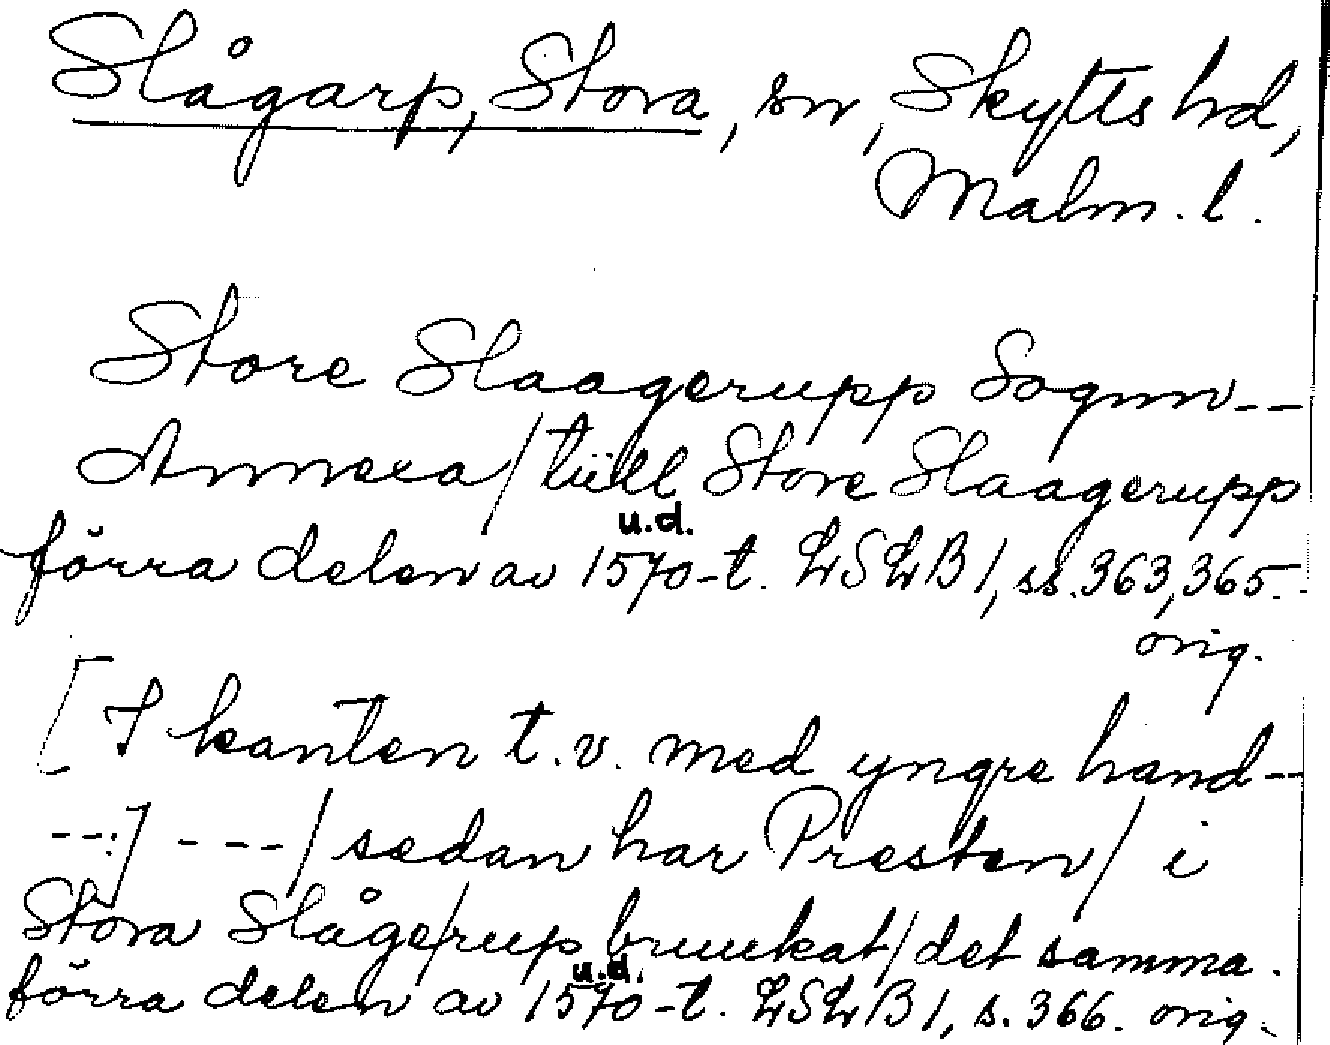 Slågarp, Stora, sn, Skytts hd,
Malm. l.
Store Slaagerupp Sognn--
Annexa/ tüll Store Slaagerupp
u.d.
förra delen av 1570-t. LSLB 1, ss. 363, 365.
orig.
[I kanten t.v. med yngre hand--
--:] ---/ sedan har Presten/ i
Stora Slåge/rup bruukat/ det samma.
u.d.
förra delen av 1570-t. LSLB 1, s. 366. orig.